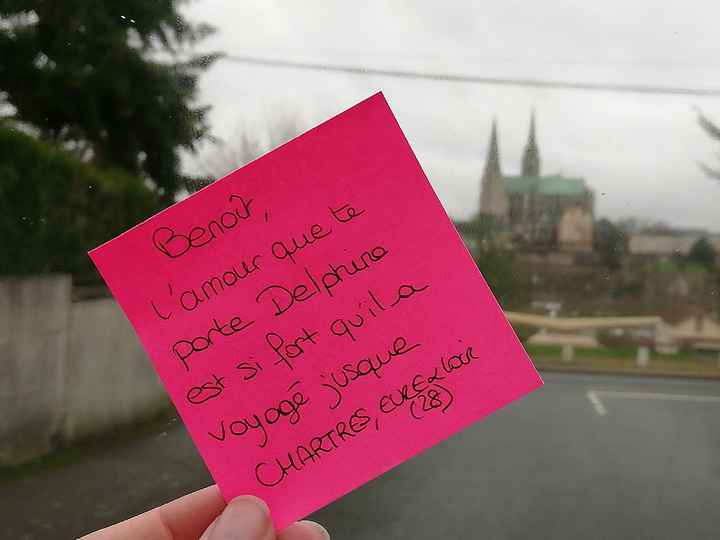 Benoît,
l'amour que te
porte Delphine
est si fort qu'il a
voyagé jusque
CHARTRES, EURE & Loir
(28)